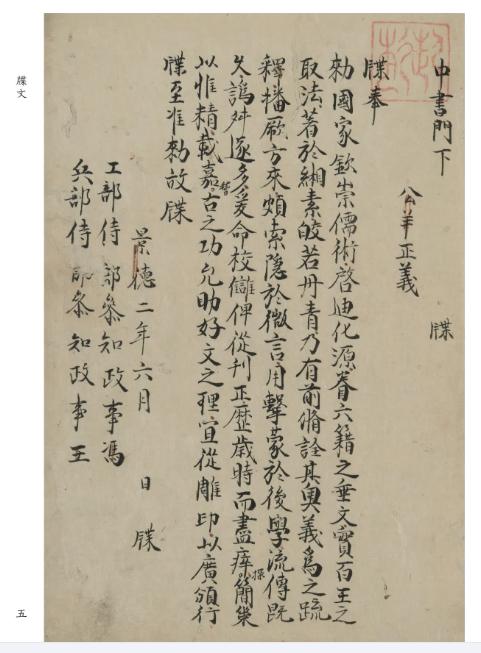 中書門下
公羊正義 牒
牒奉
勑國家欽崇儒術啓迪化源眷六籍之垂文實百王之
取法著於緗素皎若丹青乃有前脩詮其奧義爲之疏
釋播厥方來頗索隱於微言用擊蒙於後學流傳旣
久譌舛遂多爰命校讎俾從刊正歷歲時而盡瘁探簡策
以惟精載嘉稽古之功允助好文之理宜從雕印以廣頒行
牒至准勑故牒
景德二年六月 日 牒
工部侍郎叅知政事馮
兵部侍郎叅知政事王
牒文
五